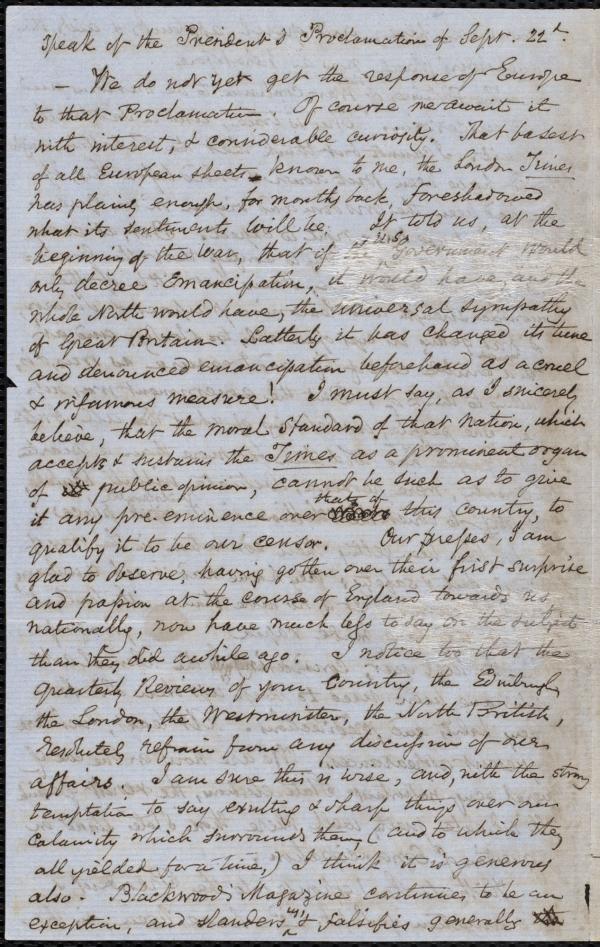 speak of the President's Proclamation of Sept. 22d.
— We do not yet get the response of Europe
to that Proclamation. Of course we await it
with interest, & considerable curiosity. That basest
of all European sheets known to me, the London Times
has plainly enough, for months back, foreshadowed
what its sentiments will be. It told us, at the
beginning of the war, that if the U.S. Government would
only decree Emancipation, it would have, and the
whole North would have, the universal sympathy
of Great Britain. Latterly it has changed its tune
and denounced emancipation beforehand as a cruel
& infamous measure! I must say, as I sincerely
believe, that the moral standard of that nation, which
accepts & sustains the Times as a prominent organ
of public opinion, cannot be such as to give
it any pre-eminence over that of this country, to
qualify it to be our censor. Our presses, I am
glad to observe, having gotten over their first surprise
and passion at the course of England towards us
nationally, now have much less to say on the subject
than they did awhile ago. I notice too that the
Quarterly Reviews of your Country, the Edinburgh,
the London, the Westminster, the North British,
resolutely refrain from any discussion of our
affairs. I am sure this is wise, and, with the strong
temptation to say exulting & sharp things over our
calamity which surrounds them, (and to which they
all yielded for a time,) I think it is generous
also. Blackwood's Magazine continues to be an
exception, and slanders us & falsifies generally